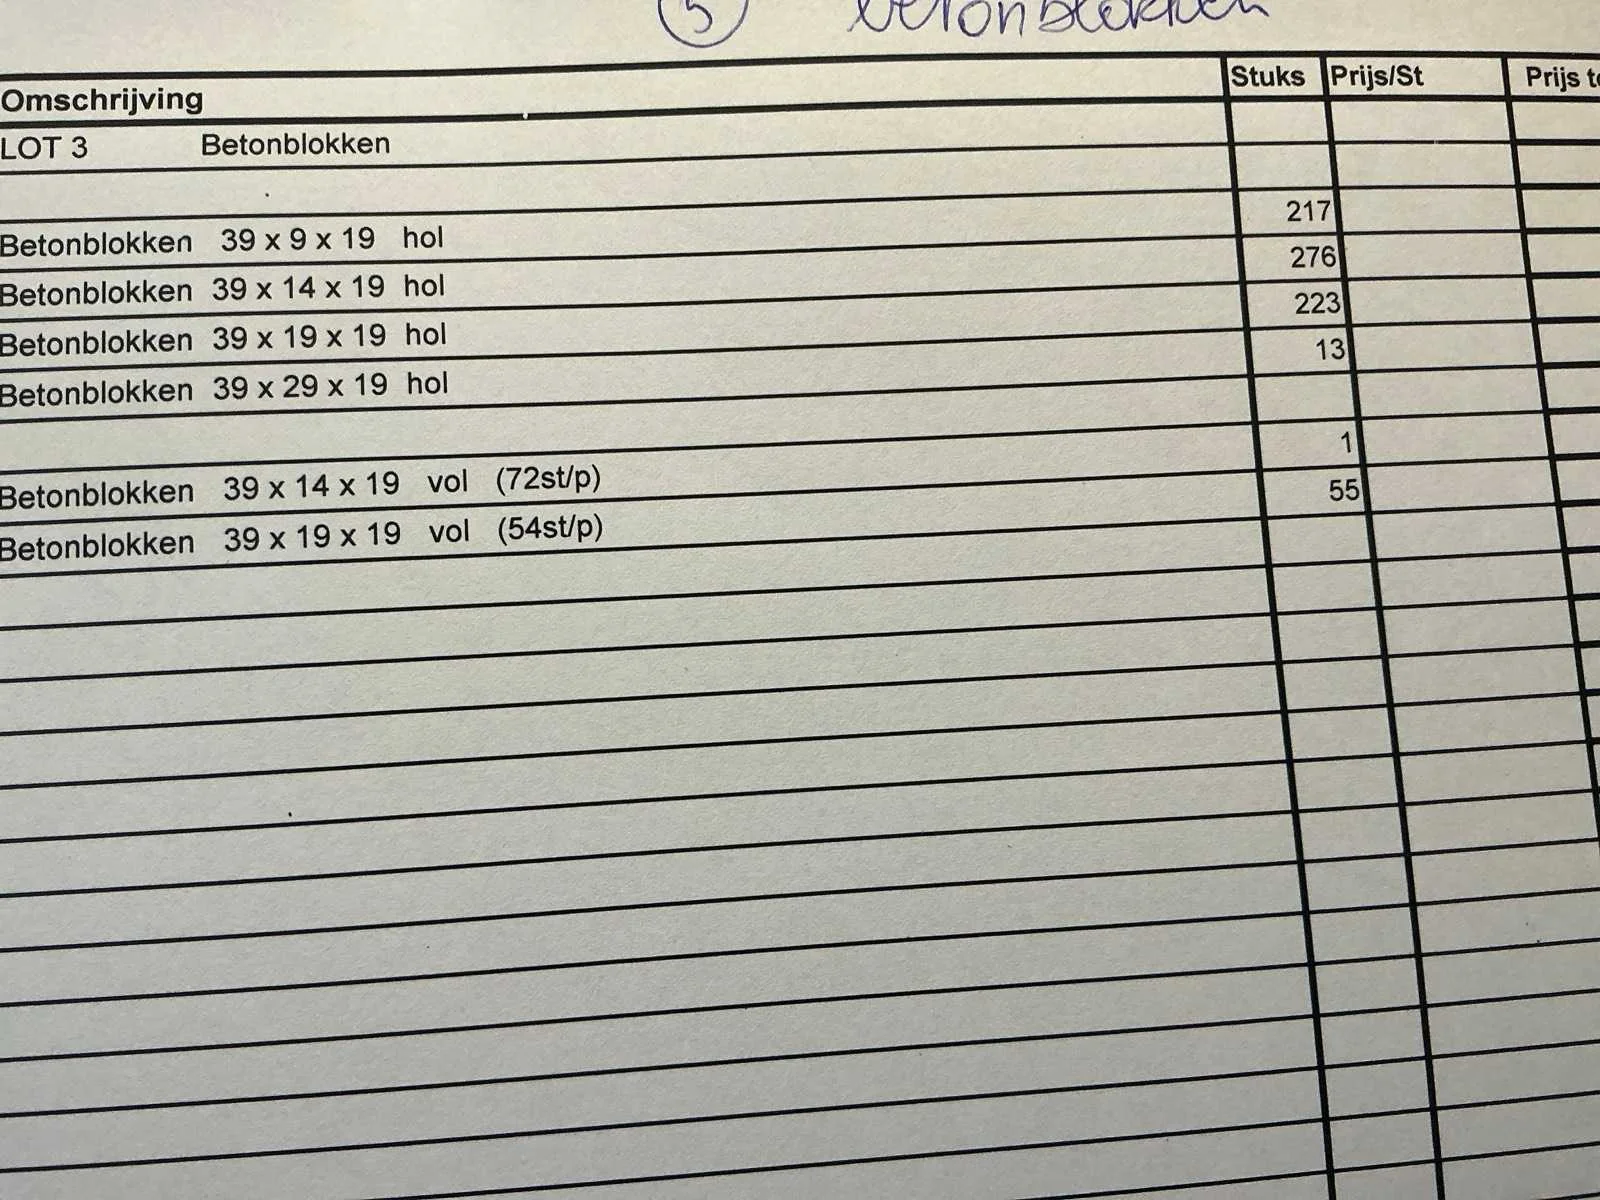 5 betonblokken
Omschrijving Stuks Prijs/St Prijs
LOT 3 Betonblokken
Betonblokken 39 x 9 x 19 hol 217
Betonblokken 39 x 14 x 19 hol 276
Betonblokken 39 x 19 x 19 hol 223
Betonblokken 39 x 29 x 19 hol 13
Betonblokken 39 x 14 x 19 vol (72st/p) 1
Betonblokken 39 x 19 x 19 vol (54st/p) 55